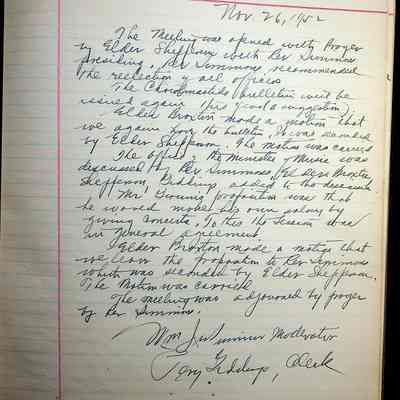 Nov. 26, 1952
The Meeting was opened with Prayer
by Elder Shepperson with Rev Simmons
presiding. Rev Simmons recommended
the reelection of all officers
The Christmastide bulletin will be
issued again (Mrs suggestion).
Elder Broxton made a motion that
we again buy the bulletin, It was seconded
by Elder Shepperson. The motion was carried
The office of the Minister of Music was
discussed by Rev Simmons, Elders Broxton
Shepperson, Giddings, added to the discussion
Mr Young proposition was that
he would make his own salary by
giving concerts. To this the Session was
in general agreement.
Elder Broxton made a motion that
we leave the Proposation to Rev Simmons
which was seconded by Elder Shepperson.
The Motion was carried
The meeting was adjourned by prayer
by Rev Simmons.
Wm J. Simmons Moderator
Giddings, Clerk